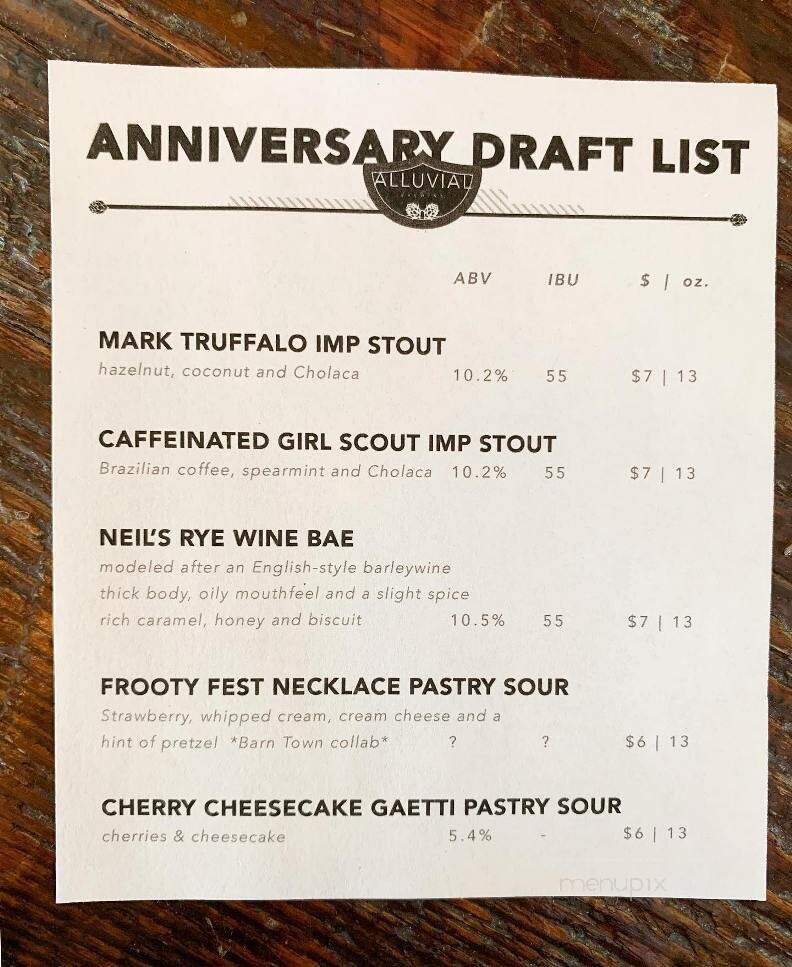 ANNIVERSARY DRAFT LIST
ALLUVIAL
ABV IBU $ | oz.
MARK TRUFFALO IMP STOUT
hazelnut, coconut and Cholaca 10.2% 55 $7 | 13
CAFFEINATED GIRL SCOUT IMP STOUT
Brazilian coffee, spearmint and Cholaca 10.2% 55 $7 | 13
NEIL'S RYE WINE BAE
modeled after an English-style barleywine
thick body, oily mouthfeel and a slight spice
rich caramel, honey and biscuit 10.5% 55 $7 | 13
FROOTY FEST NECKLACE PASTRY SOUR
Strawberry, whipped cream, cream cheese and a
hint of pretzel *Barn Town collab* ? ? $6 | 13
CHERRY CHEESECAKE GAETTI PASTRY SOUR
cherries & cheesecake 5.4% - $6 | 13
menupix